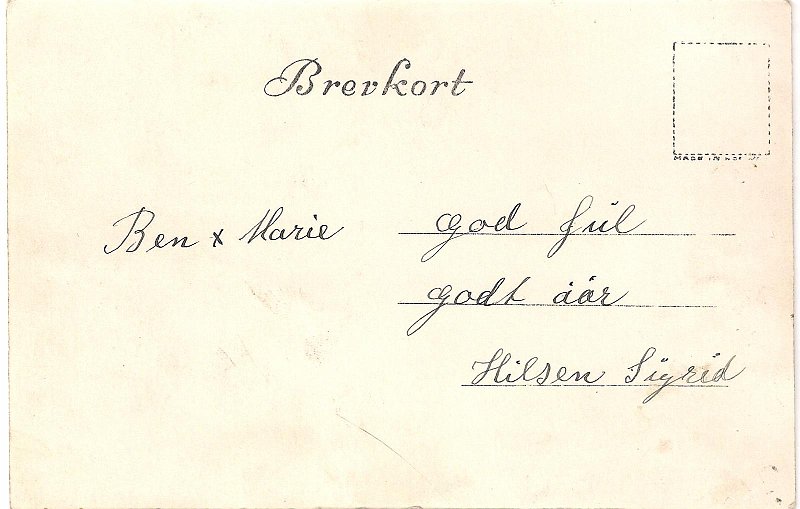 Brevkort
MADE IN
Ben x Marie
God Jül
Godt åår
Hilsen Sigrid